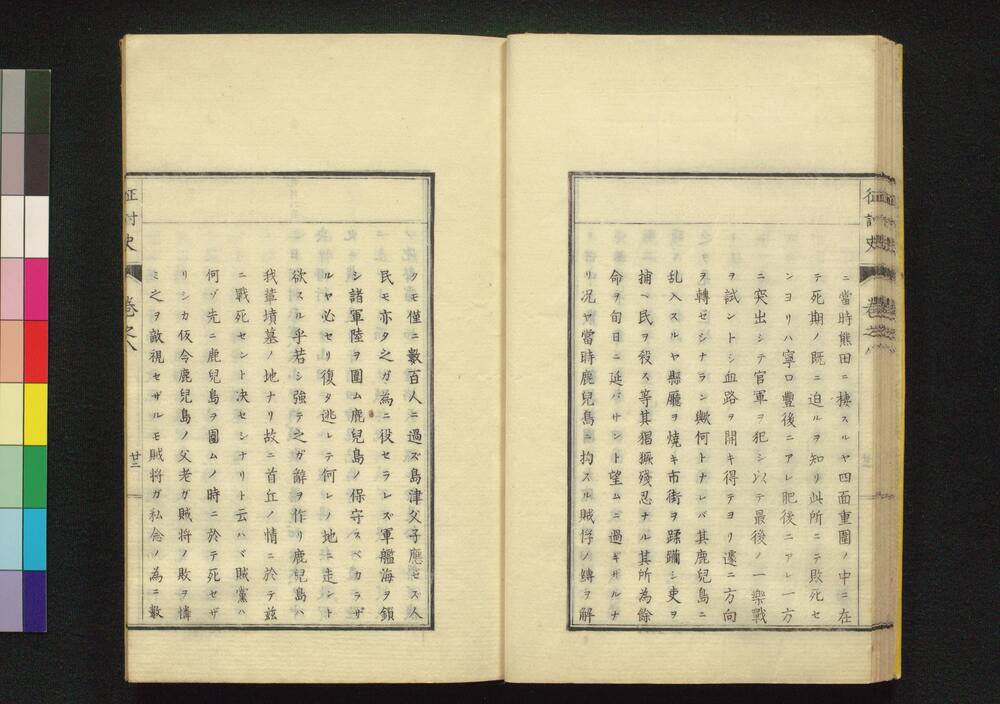 征討史 卷之八
ニ當時熊田ニ棲スルヤ四面重圍ノ中ニ在
テ死期ノ既ニ迫ルヲ知リ此所ニテ敗死セ
ンヨリハ寧ロ豐後ニアレ肥後ニアレ一方
ニ突出シテ官軍ヲ犯シ以テ最後ノ一樂戰
ヲ試ントシ血路ヲ開キ得テヨリ遽ニ方向
ヲ轉ゼシナラン歟何トナレバ其鹿兒島ニ
乱入スルヤ縣廳ヲ燒キ市街ヲ蹂躪シ吏ヲ
捕ヘ民ヲ役ス等其猖獗殘忍ナル其所為餘
命ヲ旬日ニ延バサント望ムニ過ギザルナ
リ况ヤ當時鹿兒島ニ拘スル賊俘ノ縛ヲ解
クモ僅ニ數百人ニ過ズ島津父子應セズ人
民モ亦タ之ガ為ニ役セラレズ軍艦海ヲ鎖
シ諸軍陸ヲ圍ム鹿兒島ノ保守スベカラザ
ルヤ必セリ復タ逃レテ何レノ地ニ走ント
欲スル乎若シ強テ之ガ辭ヲ作リ鹿兒島ハ
我輩墳墓ノ地ナリ故ニ首丘ノ情ニ於テ茲
ニ戰死セント決セシナリト云ハバ賊黨ハ
何ゾ先ニ鹿兒島ヲ圍ムノ時ニ於テ死セザ
リシカ仮令鹿兒島ノ父老ガ賊将ノ敗ヲ憐
ミ之ヲ敵視セザルモ賊将ガ私念ノ為ニ數
征討史 卷之八 廿三